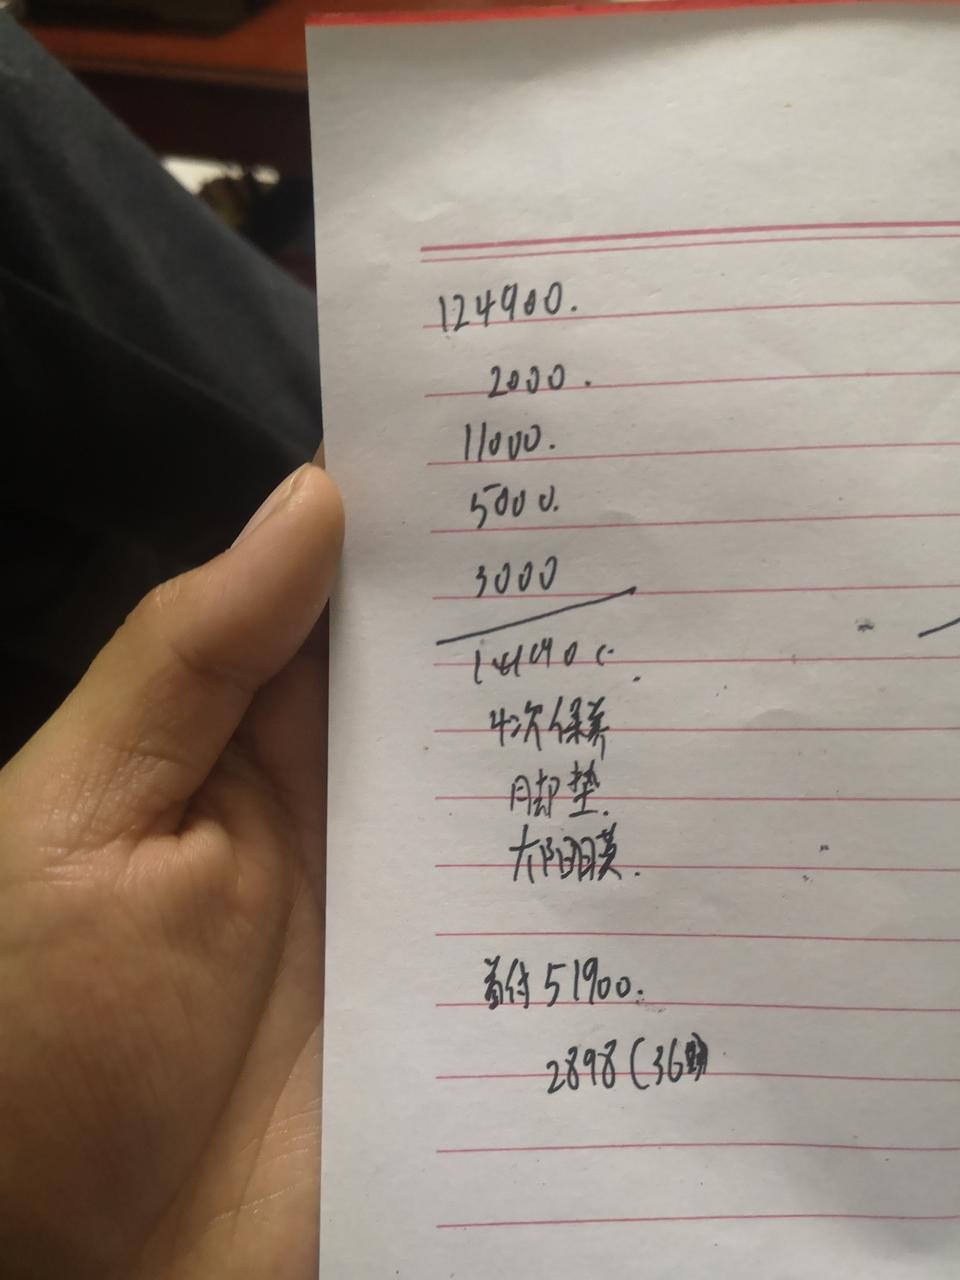 124900.
2000.
11000.
5000.
3000
4次保养
脚垫.
太阳膜.
首付51900.
2898(36期)